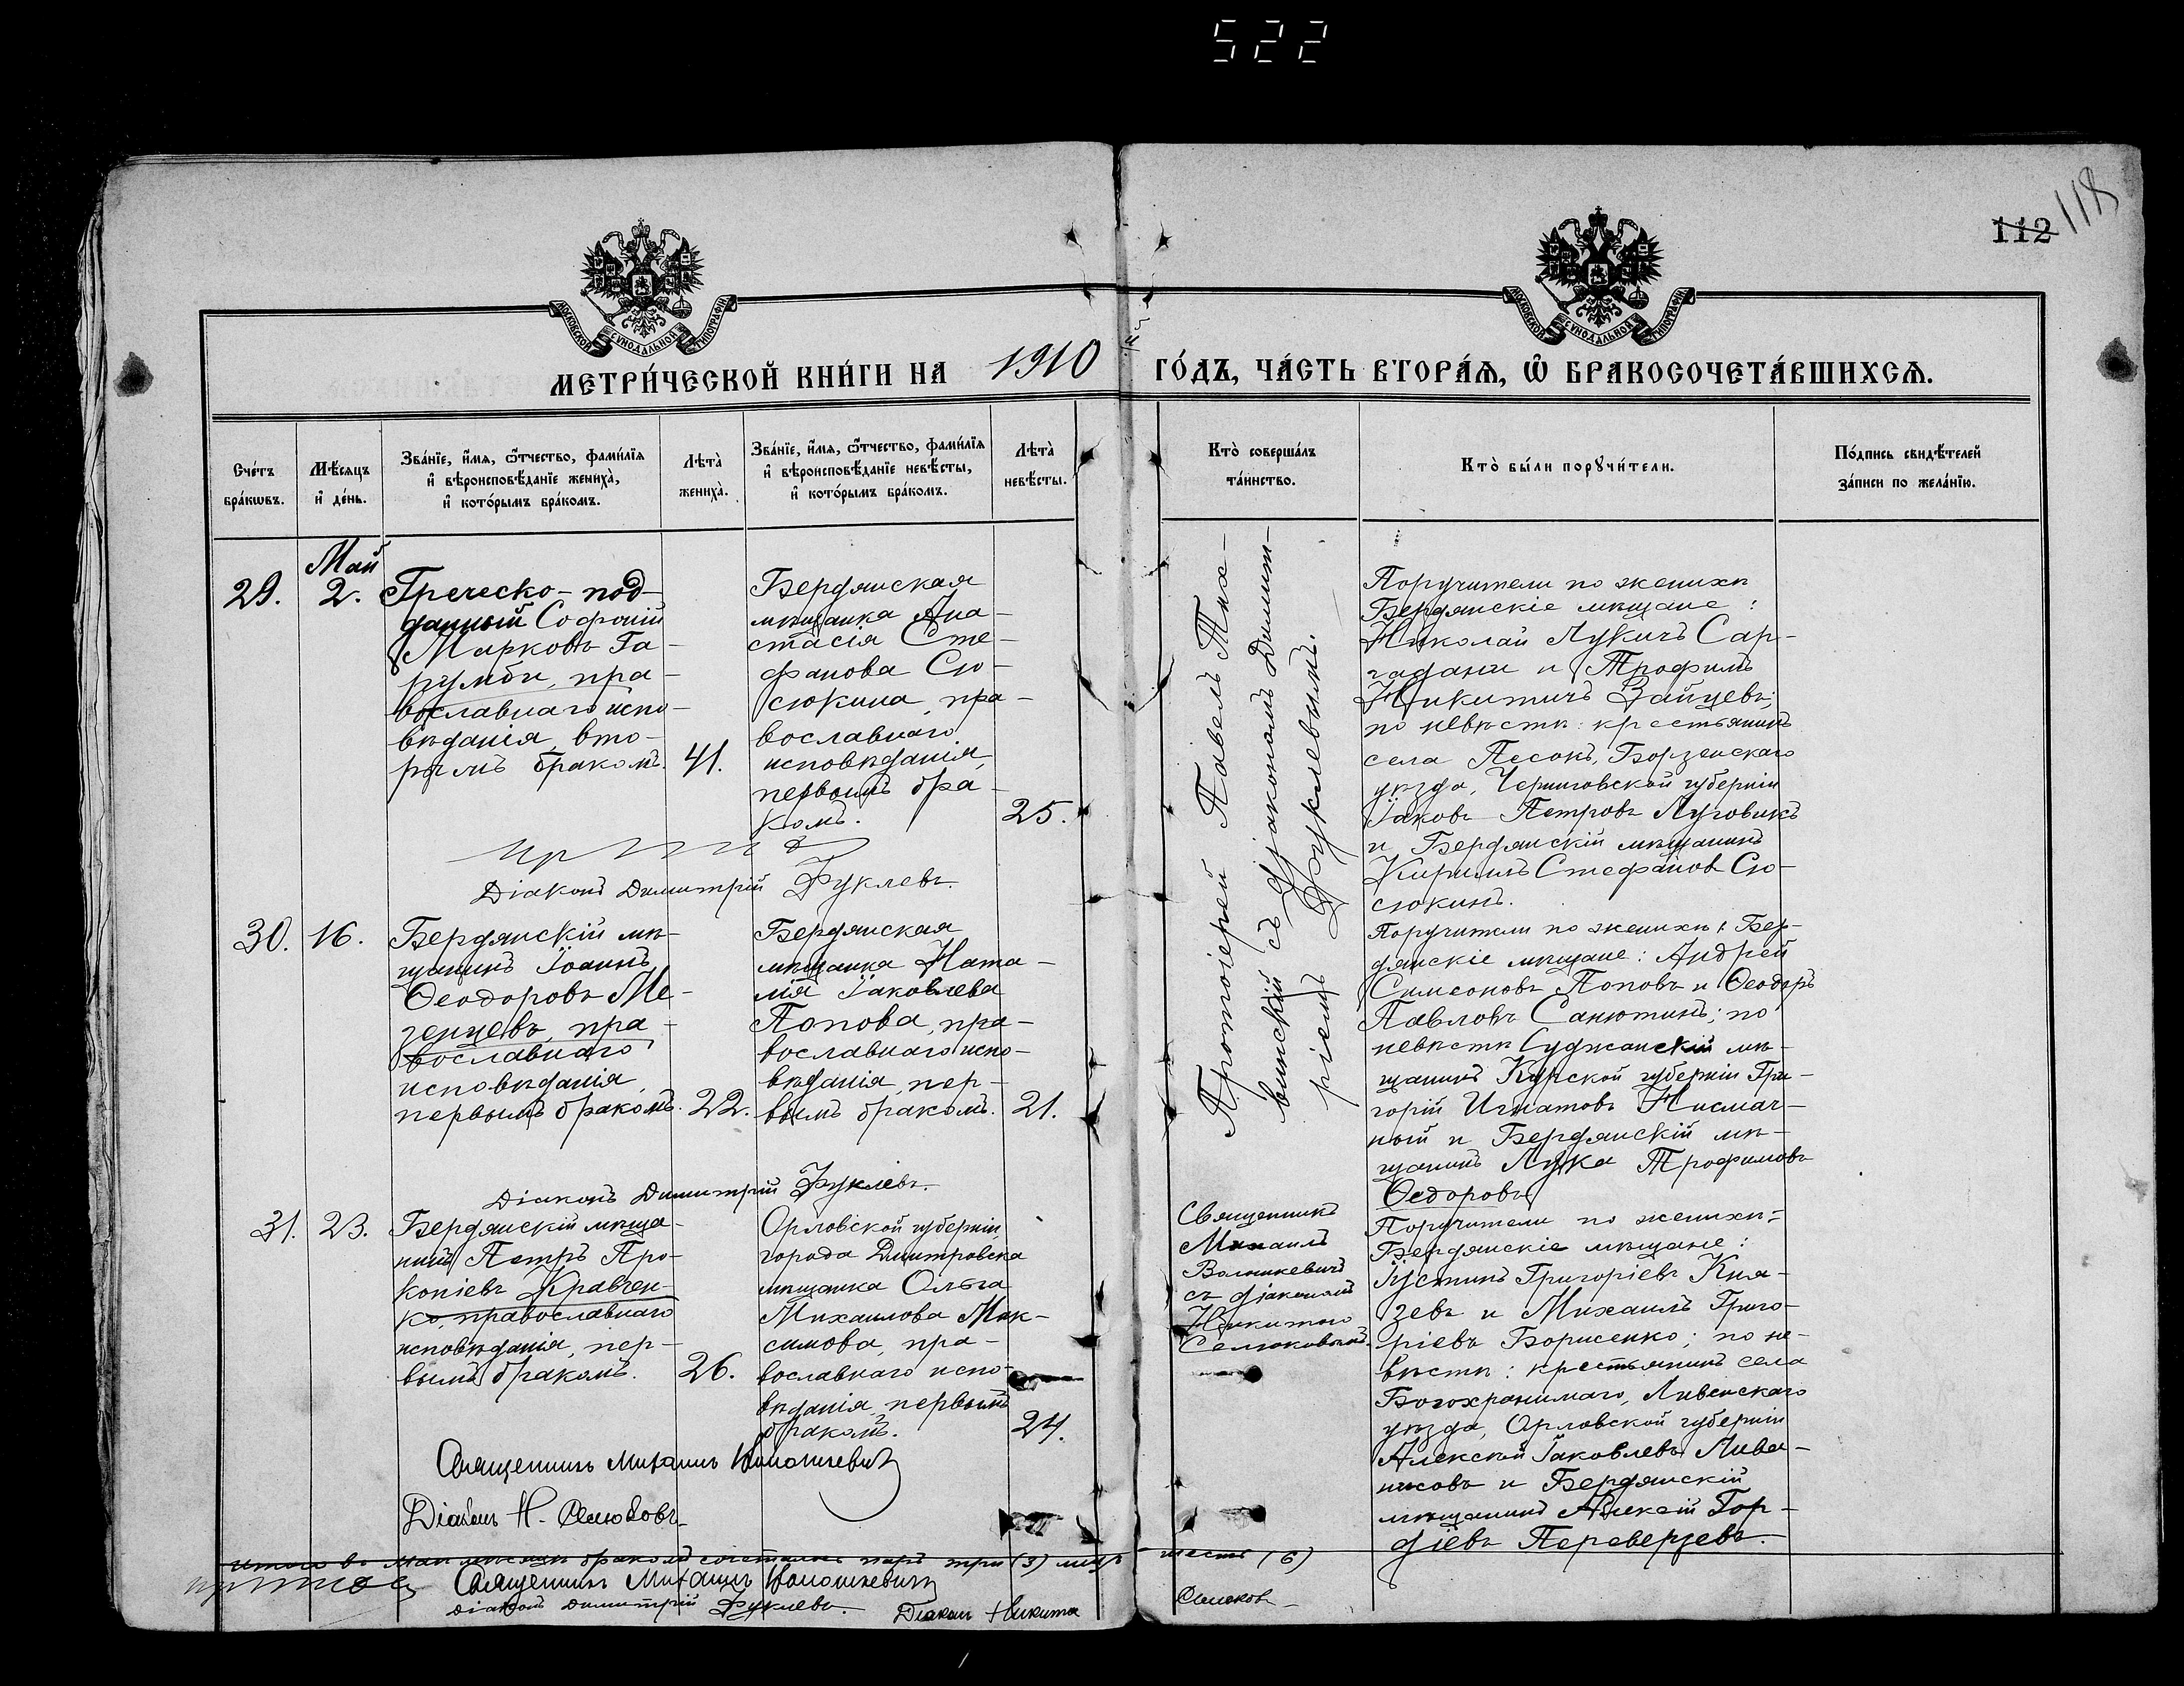 522
118
112
МОСКОВСКОЙ СѴНОДАЛЬНОЙ ТИПОГРАФІИ
МОСКОВСКОЙ СѴНОДАЛЬНОЙ ТИПОГРАФІИ
МЕТРИ́ЧЕСКОЙ КНИ́ГИ НА 1910 й ГО́ДЪ, ЧА́СТЬ ВТОРА́Ѧ, Ѽ БРАКОСОЧЕТА́ВШИХСѦ.
Сче́тъ бра́кѡвъ.
Мѣ́сѧцъ и҆ де́нь.
Зва́нїе, и҆́мѧ, ѻ҆́тчество, фами́лїѧ и҆ вѣроисповѣ́данїе жениха̀, и҆ кото́рымъ бра́комъ.
Лѣта̀ жениха̀.
Зва́нїе, и҆́мѧ, ѻ҆́тчество, фами́лїѧ и҆ вѣроисповѣ́данїе невѣ́сты, и҆ кото́рымъ бра́комъ.
Лѣта̀ невѣ́сты.
Кто̀ соверша́лъ та́инство.
Кто̀ бы́ли порꙋчи́тели.
По́дпись свидѣ́телей за́писи по жела́нїю.
Май
29. 2.
Греческо-под-
данный Софоній
Марковъ Га-
румби, пра-
вославнаго испо-
вѣданія, вто-
рымъ бракомъ. 41.
Бердянская
мѣщанка Ана-
стасія Сте-
фанова Сю-
сюкина, пра-
вославнаго
исповѣданія,
первымъ бра-
комъ. 25.
Протоіерей Павелъ Тих-
винскій съ діакономъ Димит-
ріемъ Фуклевымъ.
Поручители по женихѣ
Бердянскіе мѣщане:
Николай Лукичъ Сар-
гадани и Трофимъ
Никитичъ Зайцевъ;
по невѣстѣ: крестьянинъ
села Песокъ, Борзенскаго
уѣзда, Черниговской губерніи
Іаковъ Петровъ Луговикъ
и Бердянскій мѣщанинъ
Кириллъ Стефановъ Сю-
сюкинъ.
Діаконъ Димитрій Фуклевъ.
30. 16.
Бердянскій мѣ-
щанинъ Іоаннъ
Ѳеодоровъ Ме-
зенцевъ, пра-
вославнаго
исповѣданія,
первымъ бракомъ. 22.
Бердянская
мѣщанка Ната-
лія Іаковлева
Попова, пра-
вославнаго испо-
вѣданія, пер-
вымъ бракомъ. 21.
Поручители по женихѣ: Бер-
дянскіе мѣщане: Андрей
Симеоновъ Поповъ и Ѳеодоръ
Павловъ Санютинъ; по
невѣстѣ Суджанскій мѣ-
щанинъ Курской губерніи Гри-
горій Игнатовъ
и Бердянскій мѣ-
щанинъ Лука Трофимовъ
Ѳедоровъ
Діаконъ Димитрій Фуклевъ.
31. 23.
Бердянскій мѣща-
нинъ Петръ Про-
копіевъ Кравчен-
ко, православнаго
исповѣданія, пер-
вымъ бракомъ. 26.
Орловской губерніи,
города Дмитровска
мѣщанка Ольга
Михаилова Мак-
симова, пра-
вославнаго испо-
вѣданія, первымъ
бракомъ. 24.
Священникъ
Михаилъ
Волошкевичъ
съ діакономъ
Никитою
Селюковымъ.
Поручители по женихѣ:
Бердянскіе мѣщане:
Іустинъ Григоріевъ Кня-
зевъ и Михаилъ Григо-
ріевъ Борисенко; по не-
вѣстѣ: крестьянинъ села
Богохранимаго, Ливенскаго
уѣзда, Орловской губерніи
Алексѣй Іаковлевъ Лива-
нисовъ и Бердянскій
мѣщанинъ Алексѣй Гор-
діевъ Переверзевъ.
Священникъ Михаилъ Волошкевичъ
Діаконъ Н. Селюковъ
Итого въ маѣ мѣсяцѣ бракомъ сочеталось паръ три (3) лицъ шесть (6)
Священникъ Михаилъ Волошкевичъ
Діаконъ Димитрій Фуклевъ. Діаконъ Никита Селюковъ